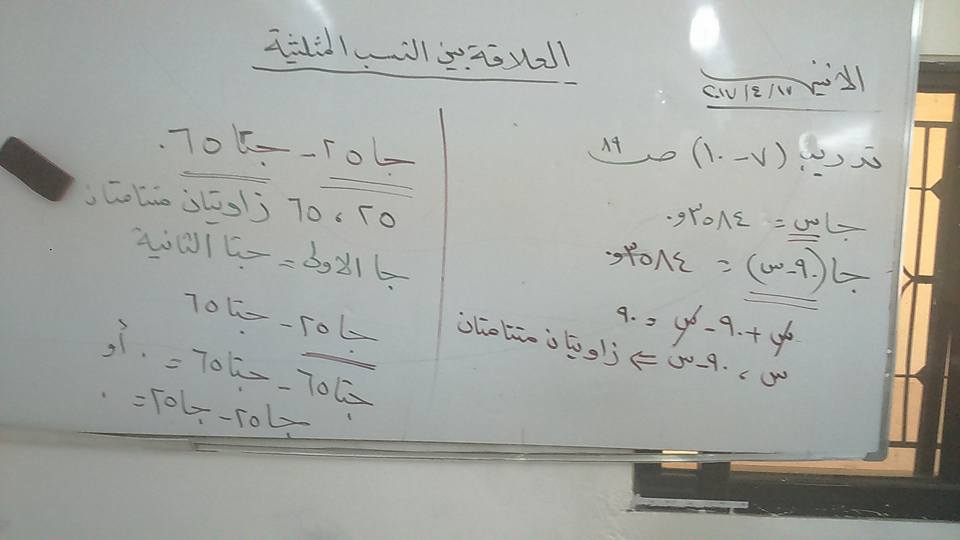 العلاقة بين النسب المثلثية
الاثنين
٢٠١٧/٤/١٧
تدريب (٧-١٠) ص ٨٩
جا س = ٣٥٨٤و٠
جا (٩٠-س) = ٣٥٨٤و٠
س + ٩٠ - س = ٩٠
س ، ٩٠-س ⇐ زاويتان متتامتان
جا ٢٥ - جتا ٦٥
٢٥ ، ٦٥ زاويتان متتامتان
جا الاولى = جتا الثانية
جا ٢٥ - جتا ٦٥
جتا ٦٥ - جتا ٦٥ = ٠ أو
جا ٢٥ - جا ٢٥ = ٠